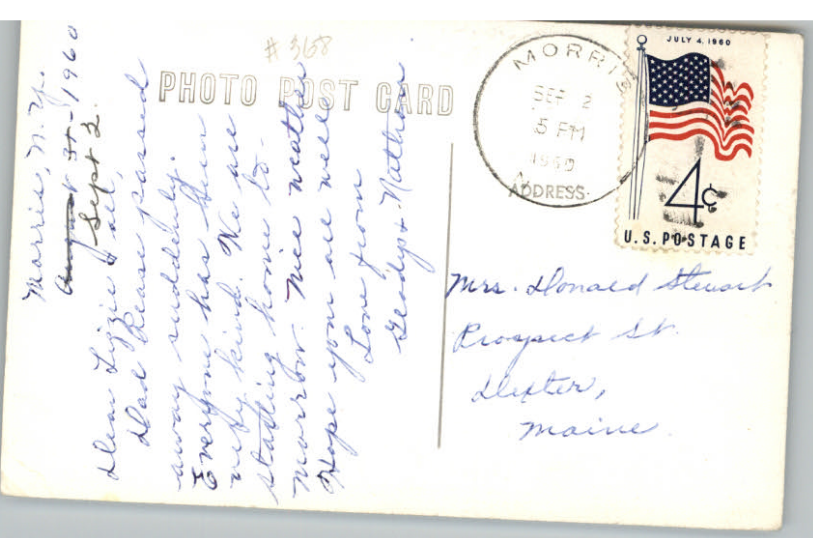 # 368
PHOTO POST CARD
MORRIS
SEP 2
5 PM
1960
ADDRESS
JULY 4, 1960
4¢
U.S. POSTAGE
Morris, N.Y.
August 31 - 1960
Sept 2.
Dear Lizzie & all,
Dad Pease passed
away suddenly.
Everyone has been
very kind. We are
starting home to-
morrow. Nice weather
Hope you are well
Love from
Gladys & Nathan
Mrs. Donald Stewart
Prospect St.
Dexter,
Maine